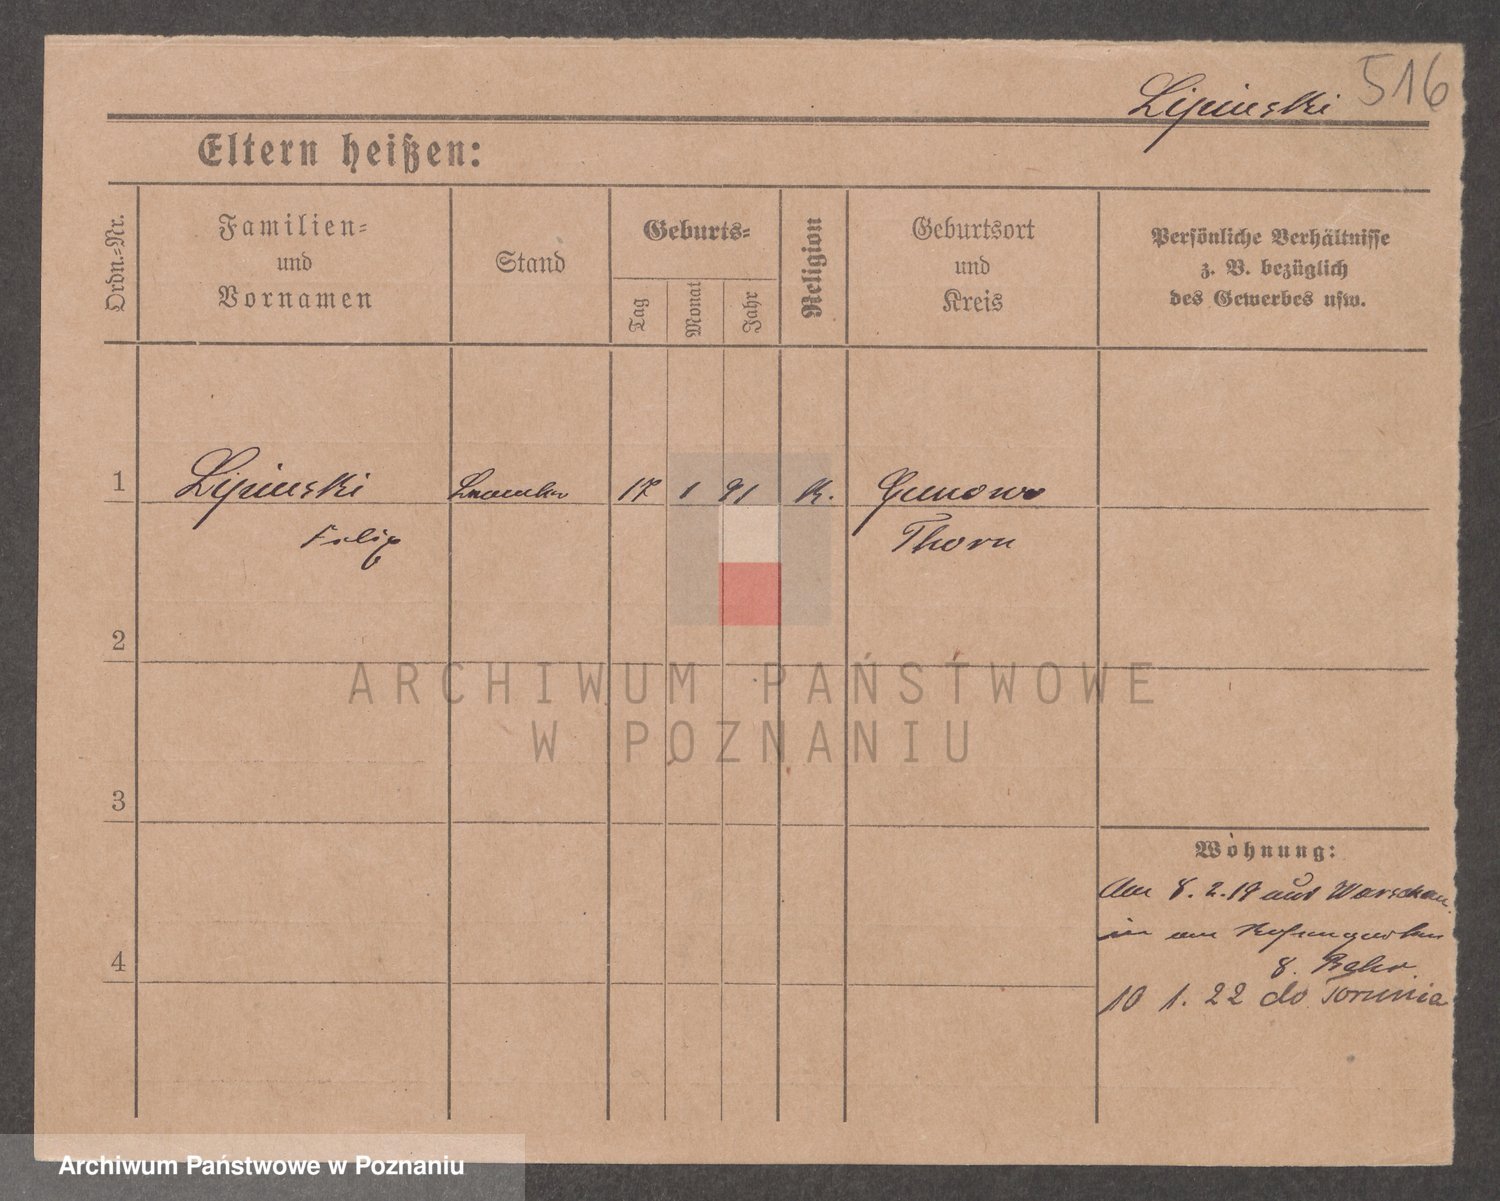 516
Lipinski
Eltern heißen:
Ordn.=Nr.
Familien=
und
Vornamen
Stand
Geburts=
Tag
Monat
Jahr
Religion
Geburtsort
und
Kreis
Persönliche Verhältnisse
z. B. bezüglich
des Gewerbes usw.
1 Lipinski 17 1 91 K.
Filip Thorn
2
ARCHIWUM PAŃSTWOWE
W POZNANIU
3
Wohnung:
Am 8. 2. 19 aus Warschau
in am
4
8.
10 1. 22 do Torunia
Archiwum Państwowe w Poznaniu